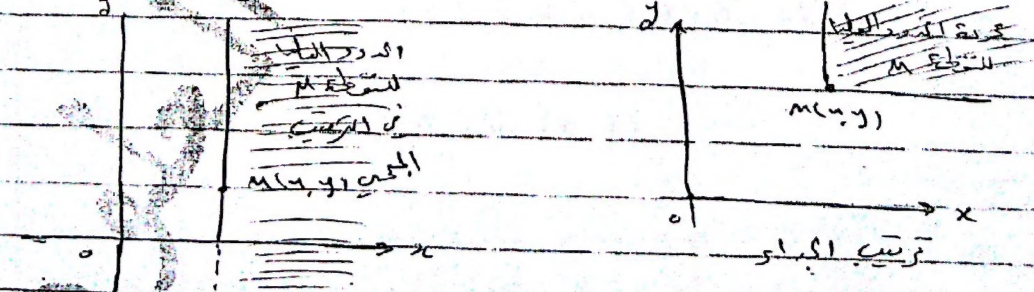 y
الحدود العليا
للنقطة M
في الترتيب
المعجمي
M(x, y)
o
x
y
مجموعة الحدود العليا
للنقطة M
M(x, y)
o
x
ترتيب الجداء